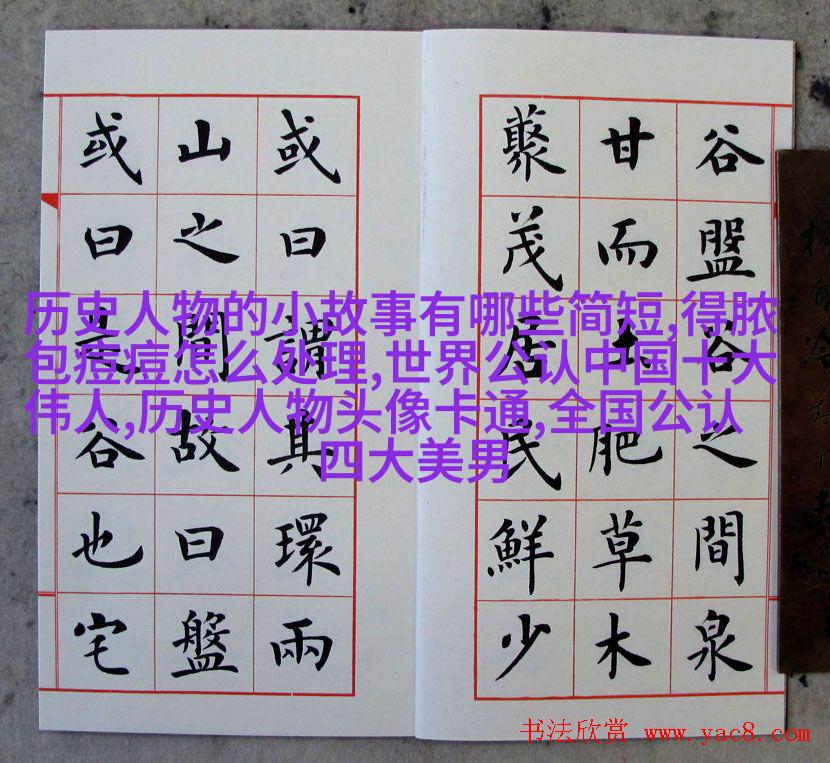 谷盤谷之間泉
甘而土肥草木
藂茂居民鮮少
或曰謂其環兩
山之間故曰盤
或曰是谷也宅
历史人物的小故事有哪些简短,得脓
包痘痘怎么处理,世界公认中国十大
伟人,历史人物头像卡通,全国公认
四大美男
书法欣赏 www.yac8.com